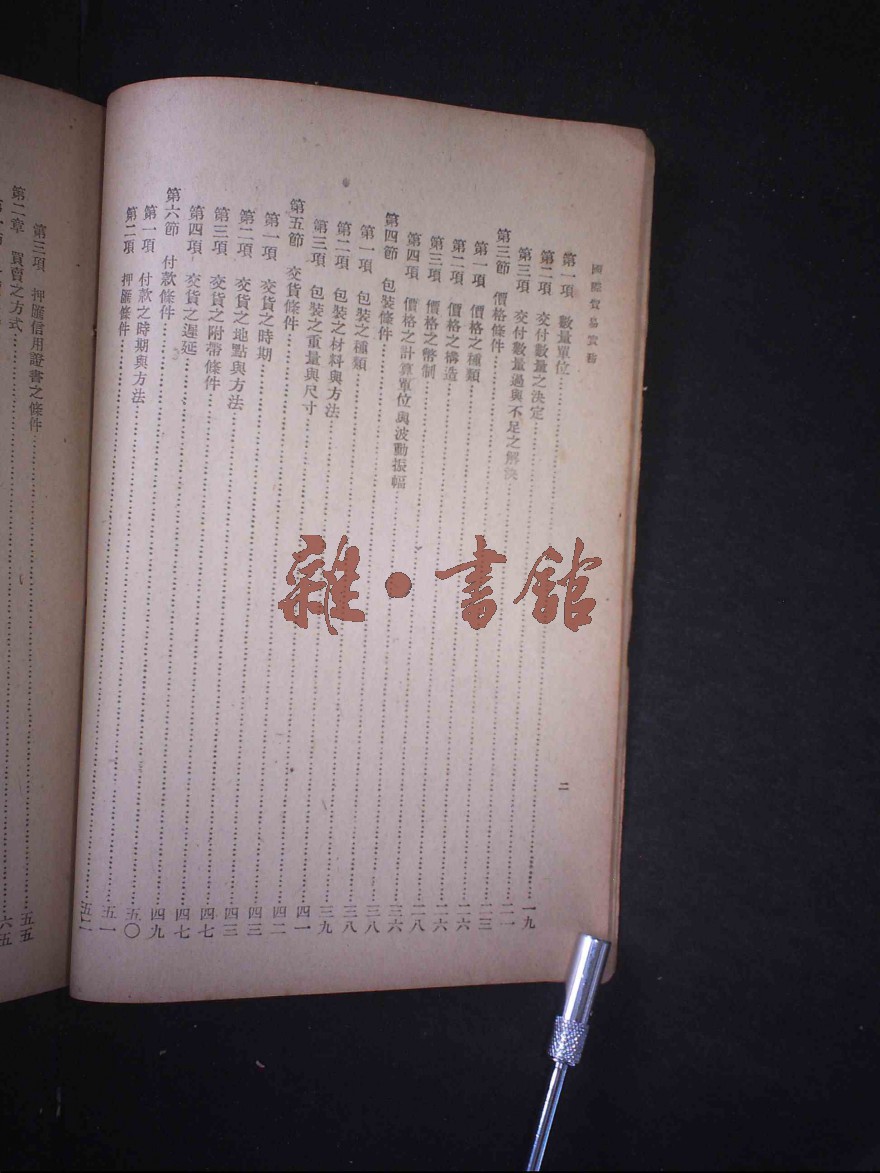 國際貿易實務
二
第一項 數量單位……一九
第二項 交付數量之決定……二一
第三項 交付數量過與不足之解決……二三
第三節 價格條件……二六
第一項 價格之種類……二六
第二項 價格之構造……二八
第三項 價格之幣制……三六
第四項 價格之計算單位與波動振幅……三八
第四節 包裝條件……三八
第一項 包裝之種類……三九
第二項 包裝之材料與方法……四一
第三項 包裝之重量與尺寸……四二
第五節 交貨條件……四三
第一項 交貨之時期……四三
第二項 交貨之地點與方法……四七
第三項 交貨之附帶條件……四七
第四項 交貨之遲延……四九
第六節 付款條件……五〇
第一項 付款之時期與方法……五一
第二項 押匯條件……五二
第三項 押匯信用證書之條件……五五
第二章 買賣之方式……六五
雜·書館